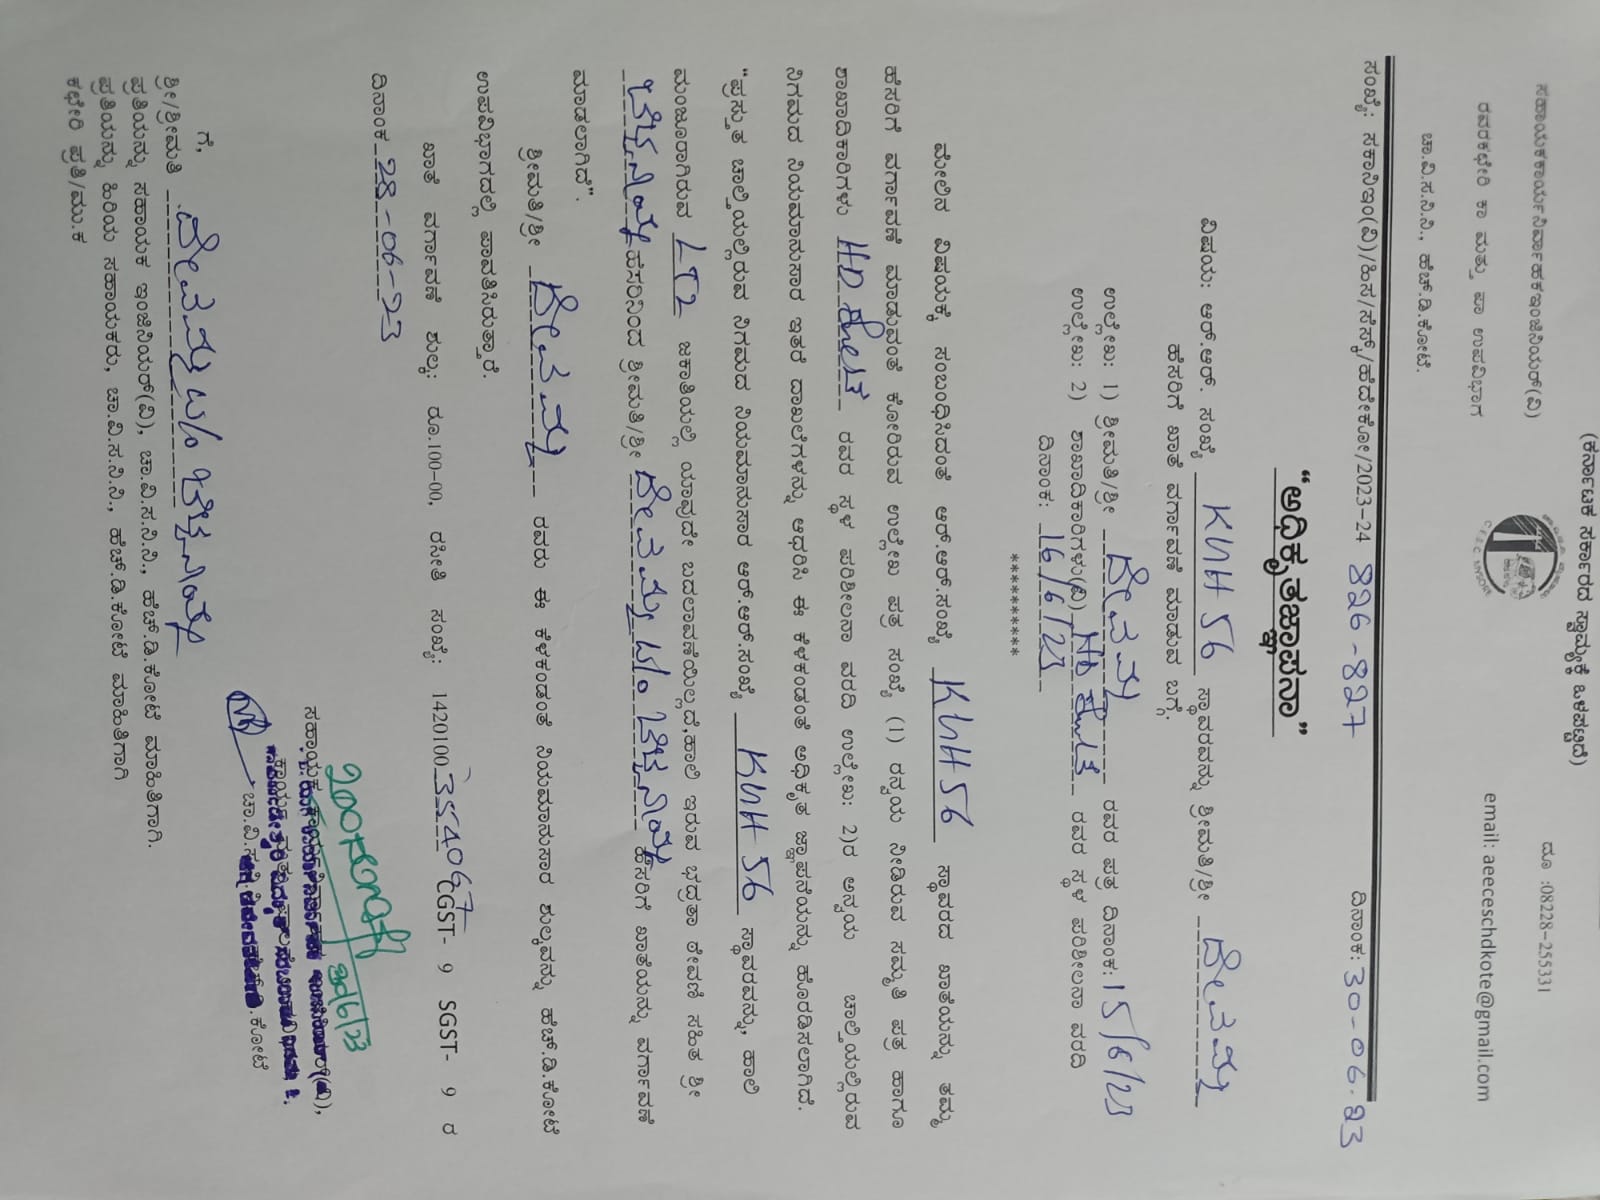 (ಕರ್ನಾಟಕ ಸರ್ಕಾರದ ಸ್ವಾಮ್ಯಕ್ಕೆ ಒಳಪಟ್ಟಿದೆ)
ಸಹಾಯಕಕಾರ್ಯನಿರ್ವಾಹಕಇಂಜಿನಿಯರ್(ವಿ) ದೂ :08228-255331
ರವರಕಛೇರಿ ಕಾ ಮತ್ತು ಪಾ ಉಪವಿಭಾಗ email: aeeceschdkote@gmail.com
ಚಾ.ವಿ.ಸ.ನಿ.ನಿ., ಹೆಚ್.ಡಿ.ಕೋಟೆ.
C E S C MYSORE
ಸಂಖ್ಯೆ: ಸಕಾನಿಇಂ(ವಿ)/ಹಿಸ/ಸೆಸ್ಕ್/ಹೆದೇಕೋ/2023-24 826-827 ದಿನಾಂಕ: 30-06-23
“ಅಧಿಕೃತಜ್ಞಾಪನಾ”
ವಿಷಯ: ಆರ್.ಆರ್. ಸಂಖ್ಯೆ KUH 56 ಸ್ಥಾವರವನ್ನು ಶ್ರೀಮತಿ/ಶ್ರೀ ದೇವಮ್ಮ
ಹೆಸರಿಗೆ ಖಾತೆ ವರ್ಗಾವಣೆ ಮಾಡುವ ಬಗ್ಗೆ.
ಉಲ್ಲೇಖ: 1) ಶ್ರೀಮತಿ/ಶ್ರೀ ದೇವಮ್ಮ ರವರ ಪತ್ರ ದಿನಾಂಕ: 15/6/23
ಉಲ್ಲೇಖ: 2) ಶಾಖಾದಿಕಾರಿಗಳು(ವಿ) HD ಕೋಟೆ ರವರ ಸ್ಥಳ ಪರಿಶೀಲನಾ ವರದಿ
ದಿನಾಂಕ: 16/6/23
**********
ಮೇಲಿನ ವಿಷಯಕ್ಕೆ ಸಂಬಂಧಿಸಿದಂತೆ ಆರ್.ಆರ್.ಸಂಖ್ಯೆ KUH 56 ಸ್ಥಾವರದ ಖಾತೆಯನ್ನು ತಮ್ಮ
ಹೆಸರಿಗೆ ವರ್ಗಾವಣೆ ಮಾಡುವಂತೆ ಕೋರಿರುವ ಉಲ್ಲೇಖ ಪತ್ರ ಸಂಖ್ಯೆ (1) ರನ್ವಯ ನೀಡಿರುವ ಸಮ್ಮತಿ ಪತ್ರ ಹಾಗೂ
ಶಾಖಾದಿಕಾರಿಗಳು HD ಕೋಟೆ ರವರ ಸ್ಥಳ ಪರಿಶೀಲನಾ ವರದಿ ಉಲ್ಲೇಖ: 2)ರ ಅನ್ವಯ ಚಾಲ್ತಿಯಲ್ಲಿರುವ
ನಿಗಮದ ನಿಯಮಾನುಸಾರ ಇತರೆ ದಾಖಲೆಗಳನ್ನು ಆಧರಿಸಿ ಈ ಕೆಳಕಂಡಂತೆ ಅಧಿಕೃತ ಜ್ಞಾಪನೆಯನ್ನು ಹೊರಡಿಸಲಾಗಿದೆ.
“ಪ್ರಸ್ತುತ ಚಾಲ್ತಿಯಲ್ಲಿರುವ ನಿಗಮದ ನಿಯಮಾನುಸಾರ ಆರ್.ಆರ್.ಸಂಖ್ಯೆ KUH 56 ಸ್ಥಾವರವನ್ನು, ಹಾಲಿ
ಮಂಜೂರಾಗಿರುವ LT2 ಜಕಾತಿಯಲ್ಲಿ ಯಾವುದೇ ಬದಲಾವಣೆಯಿಲ್ಲದೆ,ಹಾಲಿ ಇರುವ ಭದ್ರತಾ ಠೇವಣಿ ಸಹಿತ ಶ್ರೀ
ಹೆಸರಿನಿಂದ ಶ್ರೀಮತಿ/ಶ್ರೀ ದೇವಮ್ಮ W/o ಹೆಸರಿಗೆ ಖಾತೆಯನ್ನು ವರ್ಗಾವಣೆ
ಮಾಡಲಾಗಿದೆ”.
ಶ್ರೀಮತಿ/ಶ್ರೀ ದೇವಮ್ಮ ರವರು ಈ ಕೆಳಕಂಡಂತೆ ನಿಯಮಾನುಸಾರ ಶುಲ್ಕವನ್ನು ಹೆಚ್.ಡಿ.ಕೋಟೆ
ಉಪವಿಭಾಗದಲ್ಲಿ ಪಾವತಿಸಿರುತ್ತಾರೆ.
ಖಾತೆ ವರ್ಗಾವಣೆ ಶುಲ್ಕ: ರೂ.100-00, ರಸೀತಿ ಸಂಖ್ಯೆ: 1420100354067 CGST- 9 SGST- 9 ರ
ದಿನಾಂಕ 28-06-23
ಸಹಾಯಕ
ಚಾ.ವಿ.ಸ ಕೋಟೆ
ಗೆ,
ಶ್ರೀ/ಶ್ರೀಮತಿ ದೇವಮ್ಮ W/o
ಪ್ರತಿಯನ್ನು ಸಹಾಯಕ ಇಂಜಿನಿಯರ್(ವಿ), ಚಾ.ವಿ.ಸ.ನಿ.ನಿ., ಹೆಚ್.ಡಿ.ಕೋಟೆ ಮಾಹಿತಿಗಾಗಿ.
ಪ್ರತಿಯನ್ನು ಹಿರಿಯ ಸಹಾಯಕರು, ಚಾ.ವಿ.ಸ.ನಿ.ನಿ., ಹೆಚ್.ಡಿ.ಕೋಟೆ ಮಾಹಿತಿಗಾಗಿ
ಕಛೇರಿ ಪ್ರತಿ/ಮು.ಕ